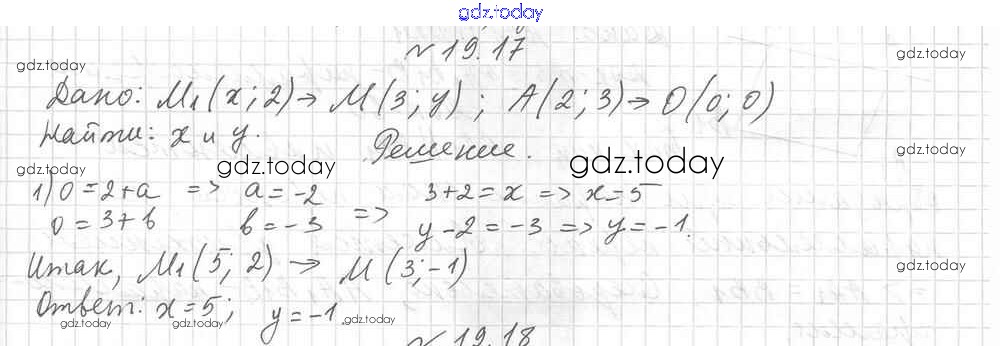 gdz.today
№ 19.17
gdz.today gdz.today
Дано: M₁(x; 2) → M(3; y); A(2; 3) → O(0; 0)
Найти: x и y.
Решение.
gdz.today gdz.today gdz.today
1) 0 = 2 + a => a = -2 3 + 2 = x => x = 5
0 = 3 + b b = -3 => y - 2 = -3 => y = -1.
Итак, M₁(5; 2) → M(3; -1)
gdz.today
Ответ: x = 5; y = -1
gdz.today gdz.today gdz.today
№ 19.18 gdz.today